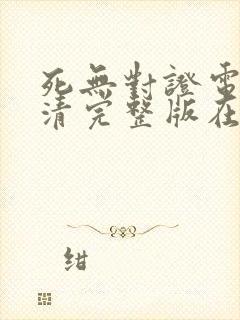 死無對證電
清完整版在
紺